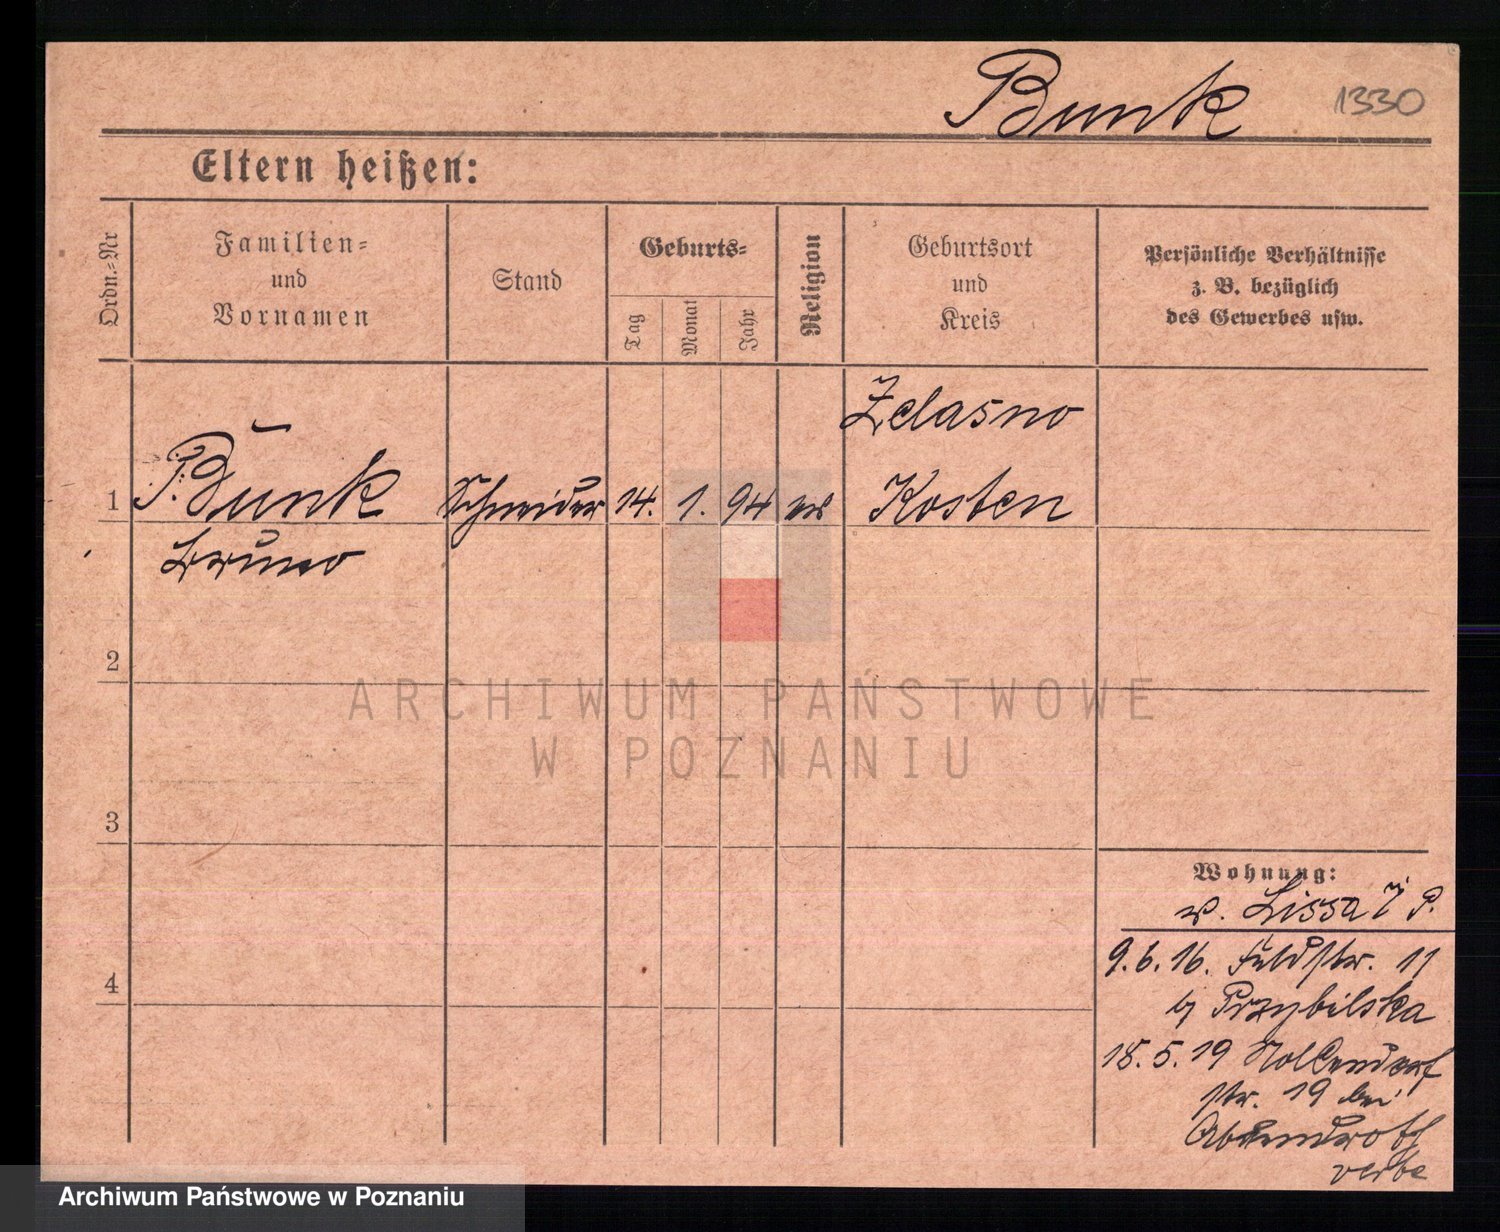 Bunk 1330
Eltern heißen:
Ordn.=Nr
Familien=
und
Vornamen
Stand
Geburts=
Tag
Monat
Jahr
Religion
Geburtsort
und
Kreis
Persönliche Verhältnisse
z. B. bezüglich
des Gewerbes usw.
Zelasno
1 Bunk Schneider 14. 1. 94 Kosten
Bruno
2
3
4
ARCHIWUM PAŃSTWOWE
W POZNANIU
Wohnung:
v. Lissa i P.
9.6.16. Feldstr. 11
b/ Przybilska
18.5.19 Nollendorf
str. 19 bei
Abendroth
Archiwum Państwowe w Poznaniu